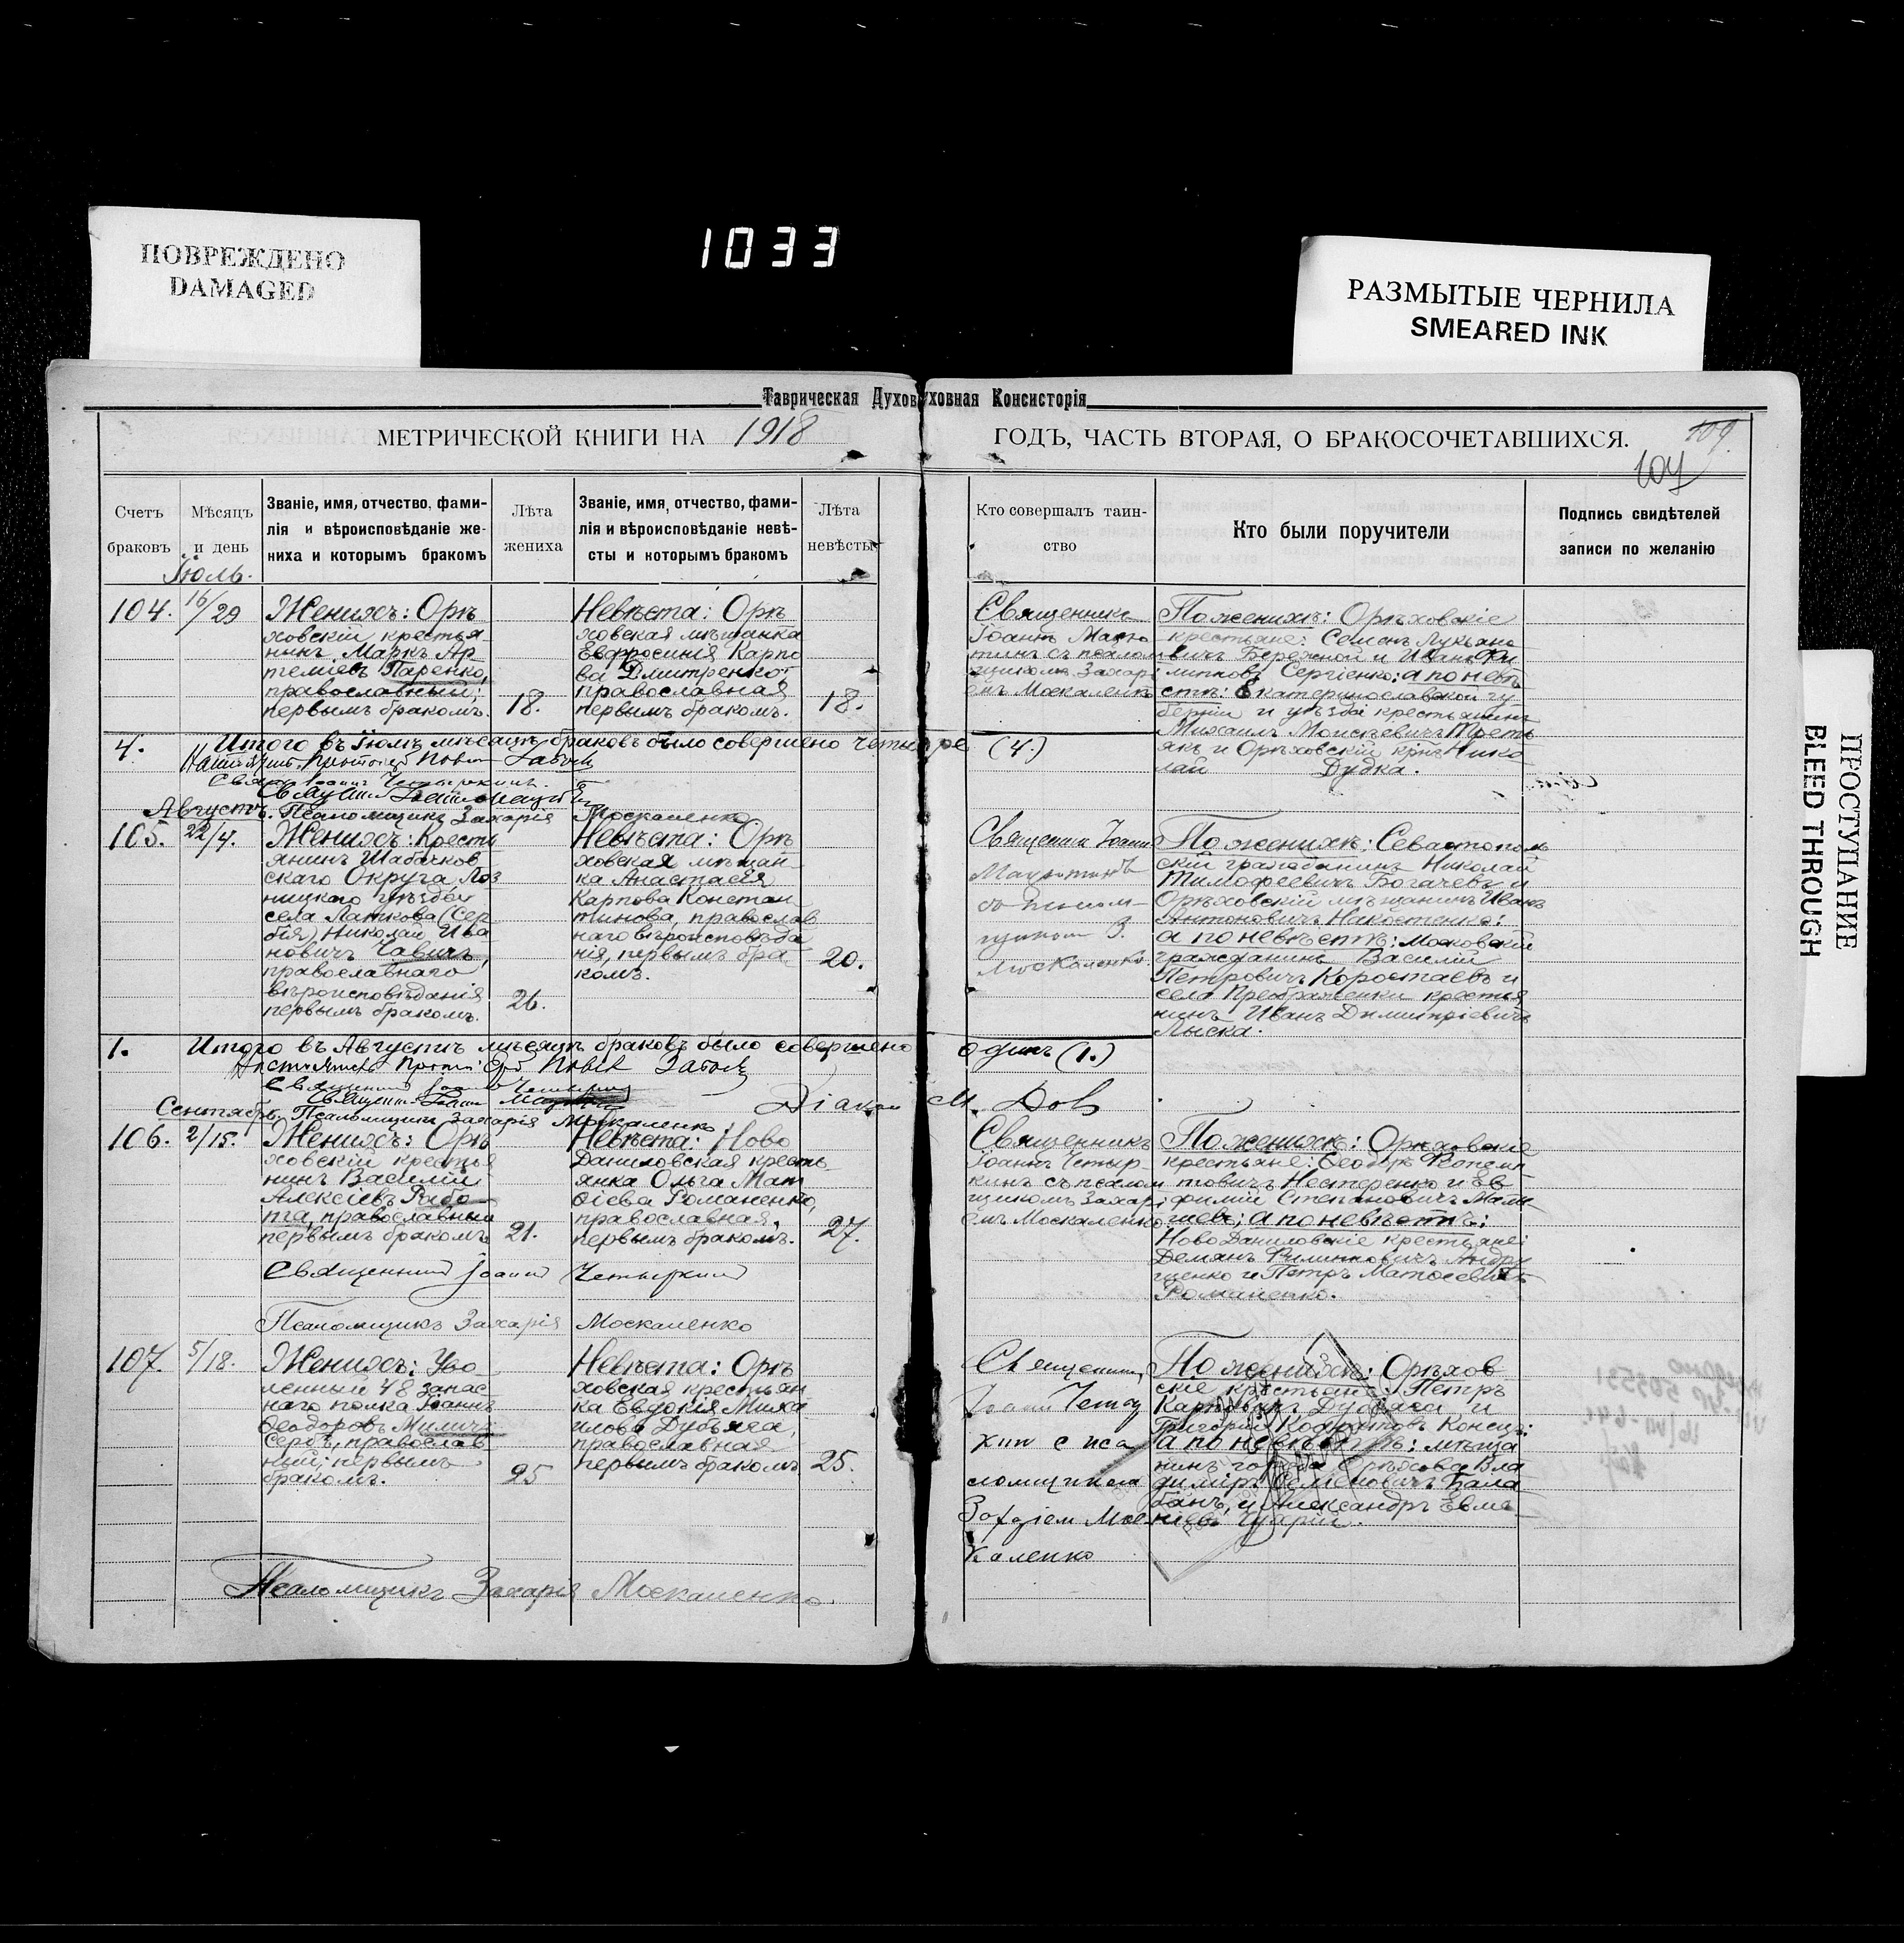 1033
ПОВРЕЖДЕНО
DAMAGED
РАЗМЫТЫЕ ЧЕРНИЛА
SMEARED INK
ПРОСТУПАНИЕ
BLEED THROUGH
Таврическая Духов уховная Консисторія
МЕТРИЧЕСКОЙ КНИГИ НА 1918
ГОДЪ, ЧАСТЬ ВТОРАЯ, О БРАКОСОЧЕТАВШИХСЯ.
109.
107
Счетъ
браковъ
Мѣсяцъ
и день
Званіе, имя, отчество, фами-
лія и вѣроисповѣданіе же-
ниха и которымъ бракомъ
Лѣта
жениха
Званіе, имя, отчество, фами-
лія и вѣроисповѣданіе невѣ-
сты и которымъ бракомъ
Лѣта
невѣсты
Кто совершалъ таин-
ство
Кто были поручители
Подпись свидѣтелей
записи по желанію
Іюль.
104.
16/29
Женихъ: Орѣ
ховскій крестья
нинъ Маркъ Ар
теміевъ Паренко,
православный;
первымъ бракомъ.
18.
Невѣста: Орѣ
ховская мѣщанка
Евфросинія Карпо
ва Дмитренко
православная
первымъ бракомъ.
18.
Священникъ
Іоаннъ Мартю
тинъ съ псалом
щикомъ Захарі
емъ Москаленко
По женихѣ: Орѣховскіе
крестьяне: Семенъ Лукьяно
вичъ Бережной и Иванъ Фи
липповъ Сергіенко; а по невѣ
стѣ: Екатеринославской гу
берніи и уѣзда крестьянинъ
Михаилъ Моисѣевичъ Треть
якъ и Орѣховскій крѣ. Нико
лай Дудка.
4.
Итого въ Іюлѣ мѣсяцѣ браковъ было совершено четыре (4.)
Священ. Іоаннъ Четыркинъ
Августъ. Псаломщикъ Захарія Москаленко
105.
22/4.
Женихъ: Кресть
янинъ Шабачков
скаго Округа Лоз
ницкаго уѣзда
села Латкова (Сер
бія) Николай Ива
новичъ Савичъ,
православнаго
вѣроисповѣданія
первымъ бракомъ.
26.
Невѣста: Орѣ
ховская мѣщан
ка Анастасія
Карпова Констан
тинова, православ
наго вѣроисповѣда
нія, первымъ бра
комъ.
20.
Священникъ Іоаннъ
съ псалом-
щикомъ З.
Москаленко
По женихѣ: Севастополь
скій гражданинъ Николай
Тимофеевичъ Богачевъ и
Орѣховскій мѣщанинъ Иванъ
Антоновичъ Накостенко;
а по невѣстѣ: Московскій
гражданинъ Василій
Петровичъ Коростаевъ и
села Преображенки крестья
нинъ Иванъ Димитріевичъ
Лыска.
1.
Итого въ Августѣ мѣсяцѣ браковъ было совершено одинъ (1.)
Священникъ Іоаннъ Четыркинъ
Діаконъ М. Дов
Сентябрь. Псаломщикъ Захарія Москаленко
106.
2/15.
Женихъ: Орѣ
ховскій крестья
нинъ Василій
Алексіевъ Рябо-
та, православный
первымъ бракомъ
21.
Невѣста: Ново
Даниловская кресть
янка Ольга Мат
ѳіева Романенко,
православная,
первымъ бракомъ.
27.
Священникъ
Іоаннъ Четыр-
кинъ съ псалом
щикомъ Захарі
емъ Москаленко
По женихѣ: Орѣховскіе
крестьяне: Ѳеодоръ
товичъ Нестеренко и Ев
фимій Степановичъ
а по невѣстѣ:
НовоДаниловскіе крестьяне:
Демянъ Филипповичъ Андру
щенко и Петръ Матѳеевичъ
Романенко.
Священникъ Іоаннъ Четыркинъ
Псаломщикъ Захарія Москаленко
107.
5/18.
Женихъ: Уво
ленный 48 запас
наго полка Іоаннъ
Ѳеодоровъ Миличъ
Сербъ, православ
ный; первымъ
бракомъ.
25
Невѣста: Орѣ
ховская крестьян
ка Евдокія Миха
илова Дубьяга,
православная
первымъ бракомъ
25.
Священникъ
Іоаннъ Четыр
кин с пса
ломщиком
Захаріем Мос
каленко
По женихѣ: Орѣхов
скіе крестьяне: Петръ
Карповичъ Дубяга и
Григорій Кондратовъ Конецъ;
а по невѣстѣ: мѣща
нинъ города Орѣхова Вла
диміръ Семеновичъ Бала
банъ, и Александръ Евме
ніевъ Цкарій.
Псаломщикъ Захарія Москаленко.